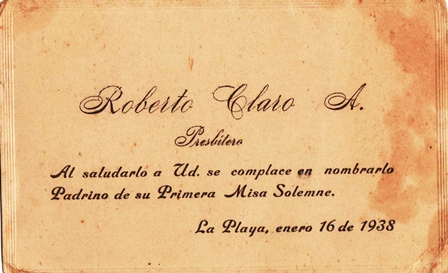 Roberto Claro A.
Presbítero
Al saludarlo a Ud. se complace en nombrarlo
Padrino de su Primera Misa Solemne.
La Playa, enero 16 de 1938